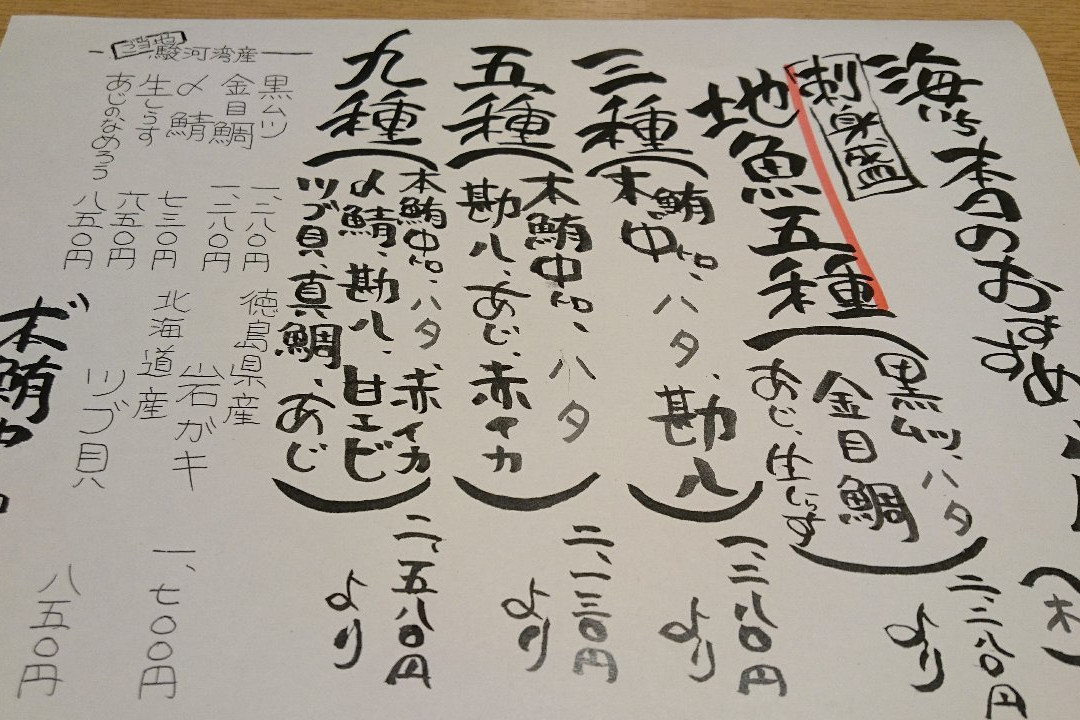 海いち 本日のおすすめ
(木)
刺身盛
地魚五種
(黒ムツ、ハタ
金目鯛
あじ、生しらす)
二、二八〇円
より
三種
(本鮪中トロ、ハタ、勘八)
一、三八〇円
より
五種
(本鮪中トロ、ハタ
勘八、あじ、赤イカ)
二、一三〇円
より
九種
(本鮪中トロ、ハタ、赤イカ
〆鯖、勘八、甘エビ
ツブ貝、真鯛、あじ)
二、五八〇円
より
駿河湾産
黒ムツ 一、二八〇円
金目鯛 一、二八〇円
〆鯖 七三〇円
生しらす 六五〇円
あじのなめろう 八五〇円
徳島県産
岩ガキ 一、七〇〇円
北海道産
ツブ貝 八五〇円
本鮪中